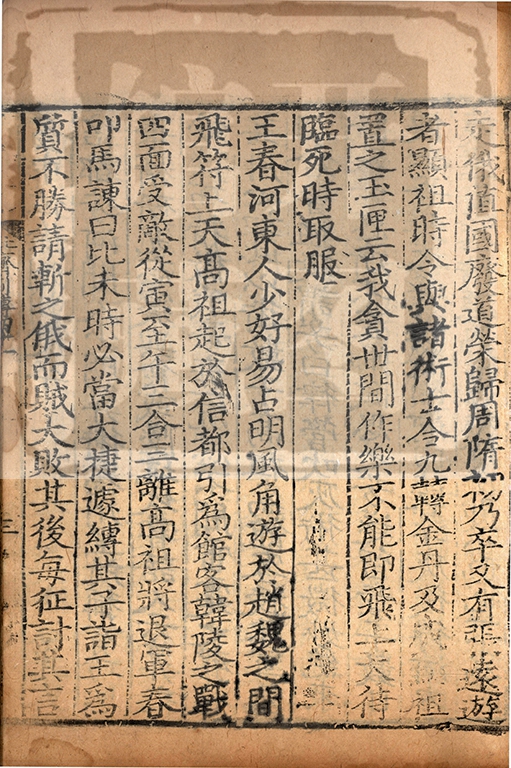 俄值國廢道榮歸周隋初乃卒又有張遠遊
者顯祖時令與諸術士合九轉金丹及成顯祖
置之玉匣云我貪世間作樂不能即飛上天待
臨死時取服
王春河東人少好易占明風角遊於趙魏之間
飛符上天髙祖起於信都引爲館客韓陵之戰
四面受敵從寅至午三合三離髙祖將退軍春
叩馬諫曰比未時必當大捷遽縛其子詣王爲
質不勝請斬之俄而賊大敗其後每征討其言